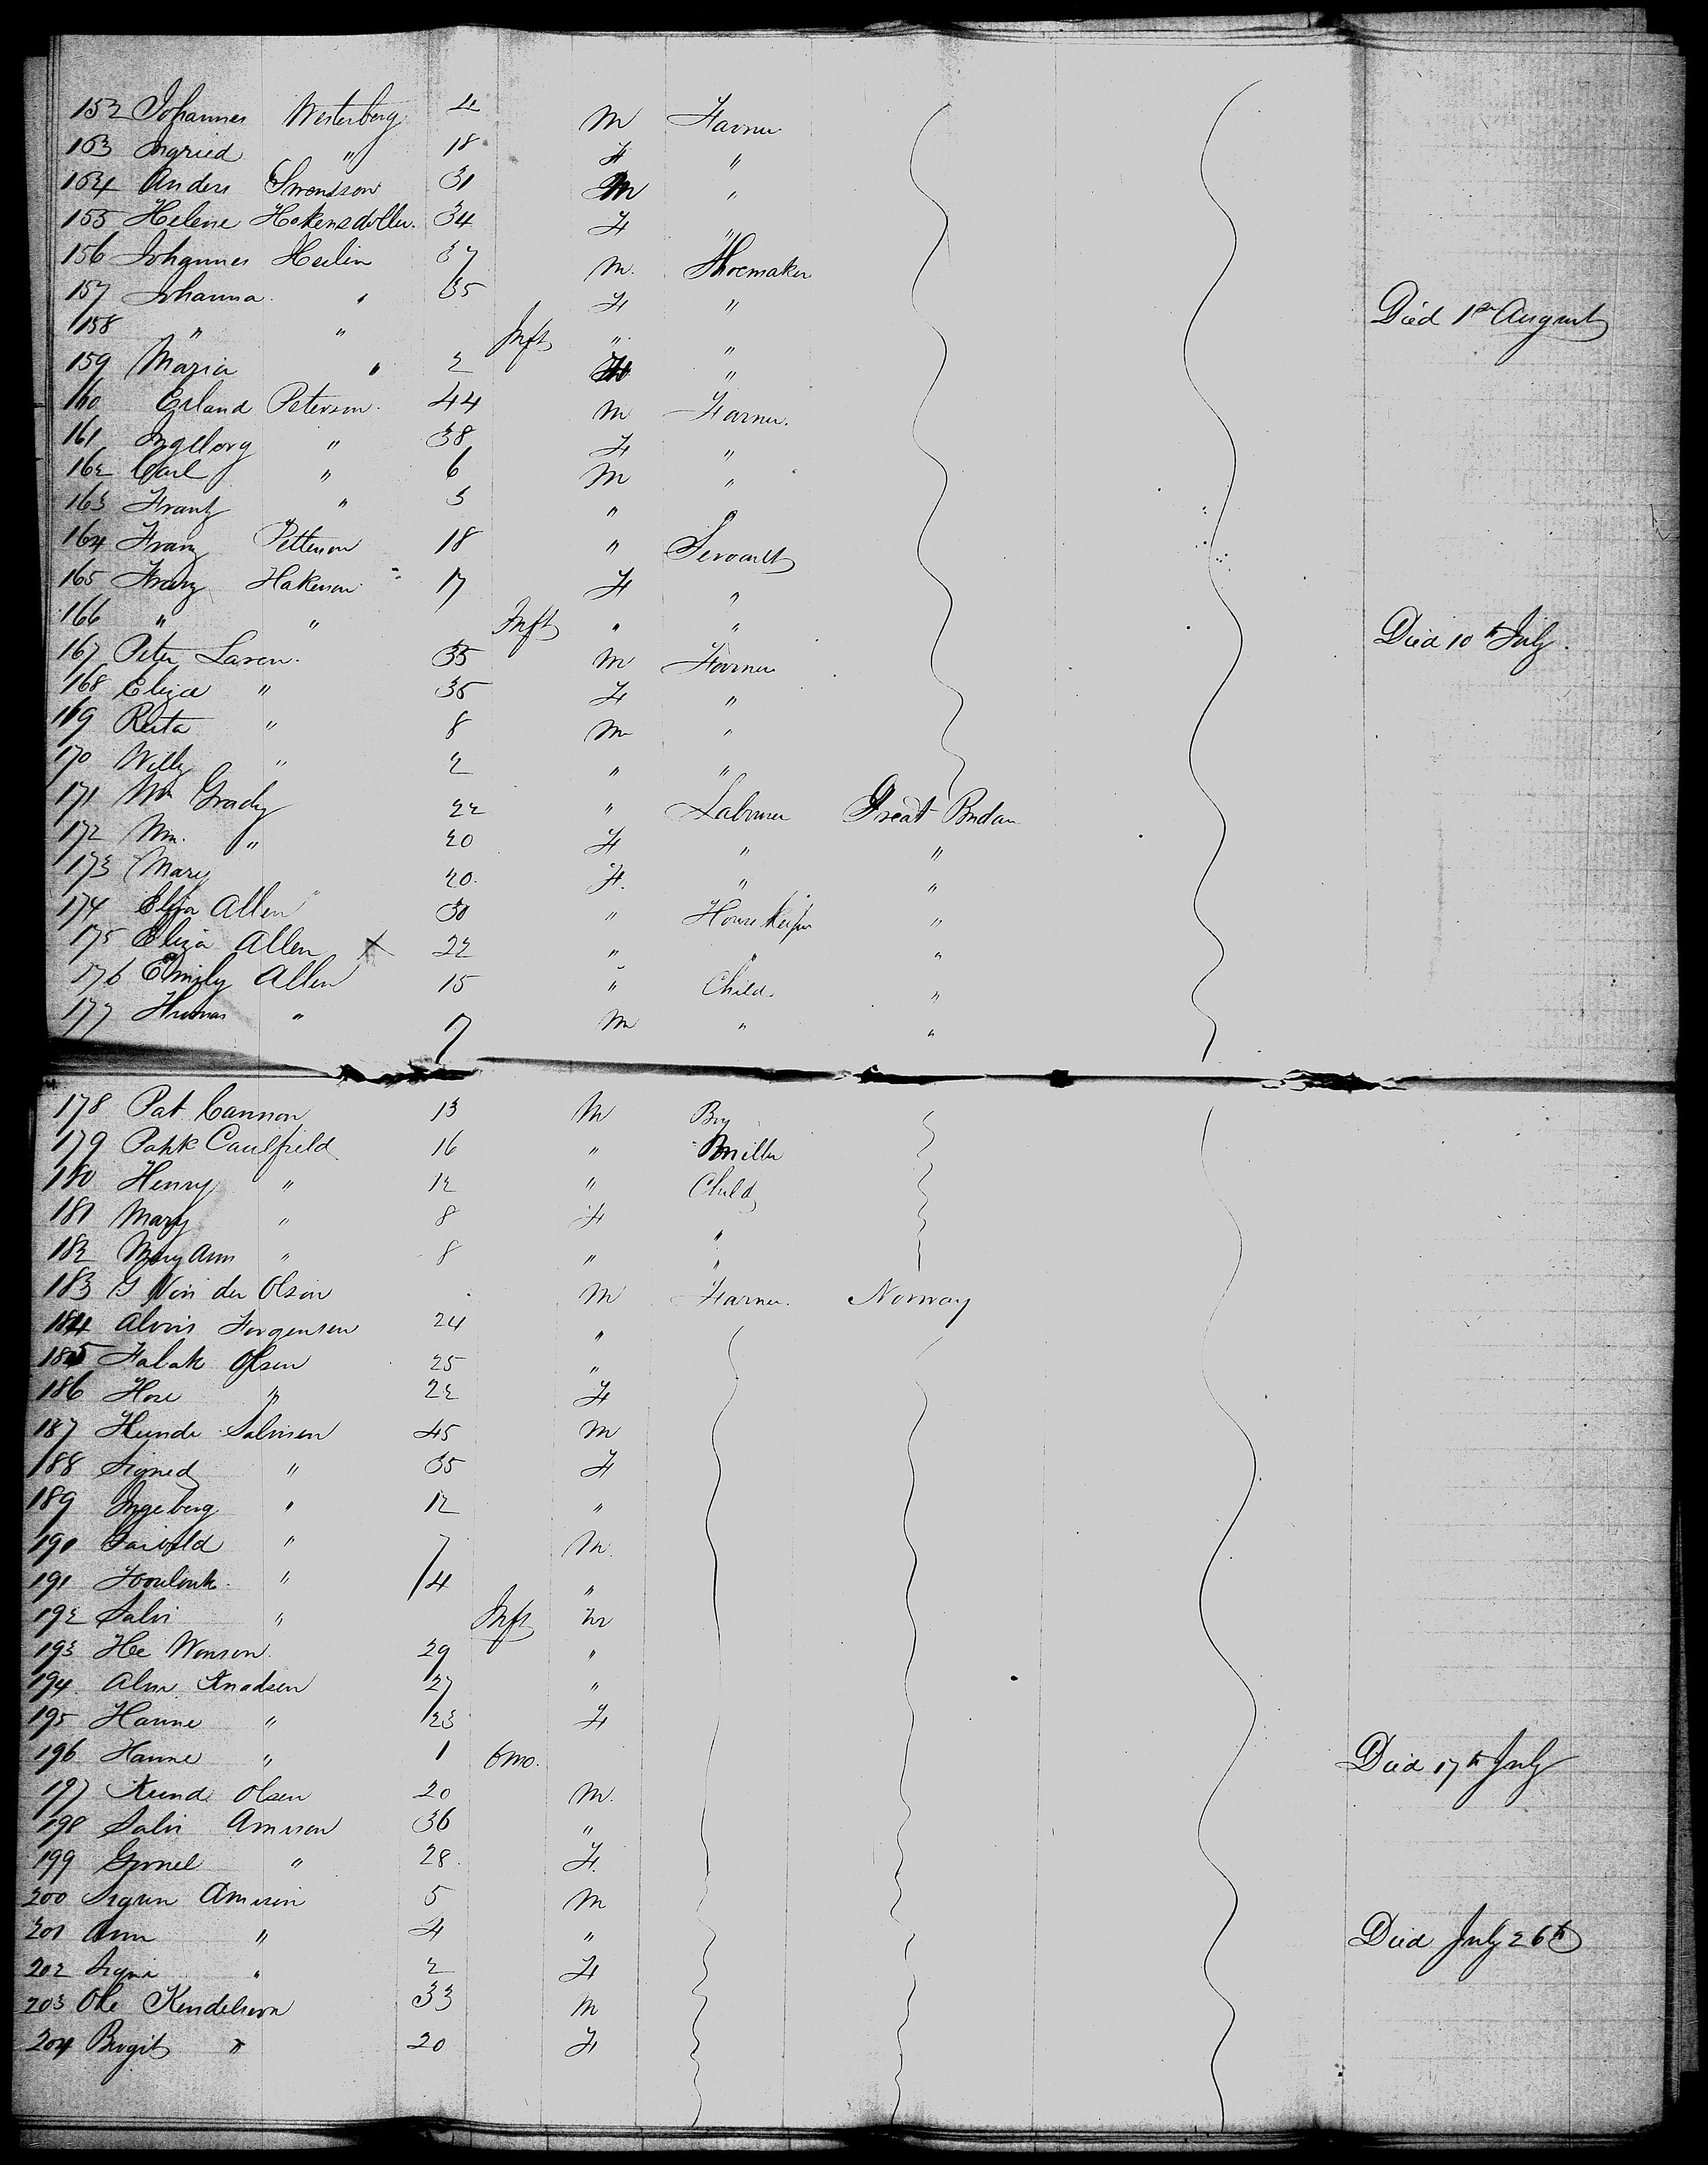 152 Johannes Westerberg 4 M Farmer
153 Ingried " 18 F "
154 Anders Swendson 31 M "
155 Helene Hokensdotter. 34 F "
156 Johannes Heilin 37 M. Shoemaker
157 Johanna. " 35 F " Died 1st August
158 " " Inft " "
159 Maria " 2 "
160 Erland Peterson. 44 M Farmer.
161 Ingeborg " 38 F "
162 Carl " 6 M "
163 Frantz " 3 " "
164 Franz Petterson 18 " Servant
165 Franz Hakenson 17 F "
166 " " Inft " " Died 10th July.
167 Peter Laren. 35 M Farmer
168 Eliza " 35 F "
169 Reita " 8 M "
170 Willy " 2 " "
171 Wm Grady 22 " Labourer Great Britain
172 Wm. " 20 F " "
173 Mary 20. F. " "
174 Eliza Allen 30 " House Keeper "
175 Eliza Allen X 22 " " "
176 Emily Allen 15 " Child. "
177 Thomas " 7 M " "
178 Pat Cannon 13 M Boy
179 Patk Caulfield 16 " Miller
180 Henry " 12 " Child
181 Mary " 8 F "
182 Mary Ann " 8 " "
183 G Von der Olson M Farmer. Norway
184 Alovis Jorgensen 24 "
185 Falak Olsen 25 "
186 Hose " 22 F
187 Hunde Salvisen 45 M
188 Signed " 35 F
189 Ingeborg " 12 "
190 " 7 M.
191 " 4 "
192 Salvi " Inft M
193 He Wonson. 29 "
194. Alvn Knadsen 27 "
195 Hanne " 23 F
196 Hanne " 1 6mo. Died 17th July
197 Knud Olsen 20 M.
198 Salvi Amison 36 "
199 Gunel " 28. F.
200 Sigrun Amisin 5 M
201 Ann " 4 " Died July 26th
202 Signe " 2 F
203 Ole Kendelson 33 M
204 Birgit " 20 F